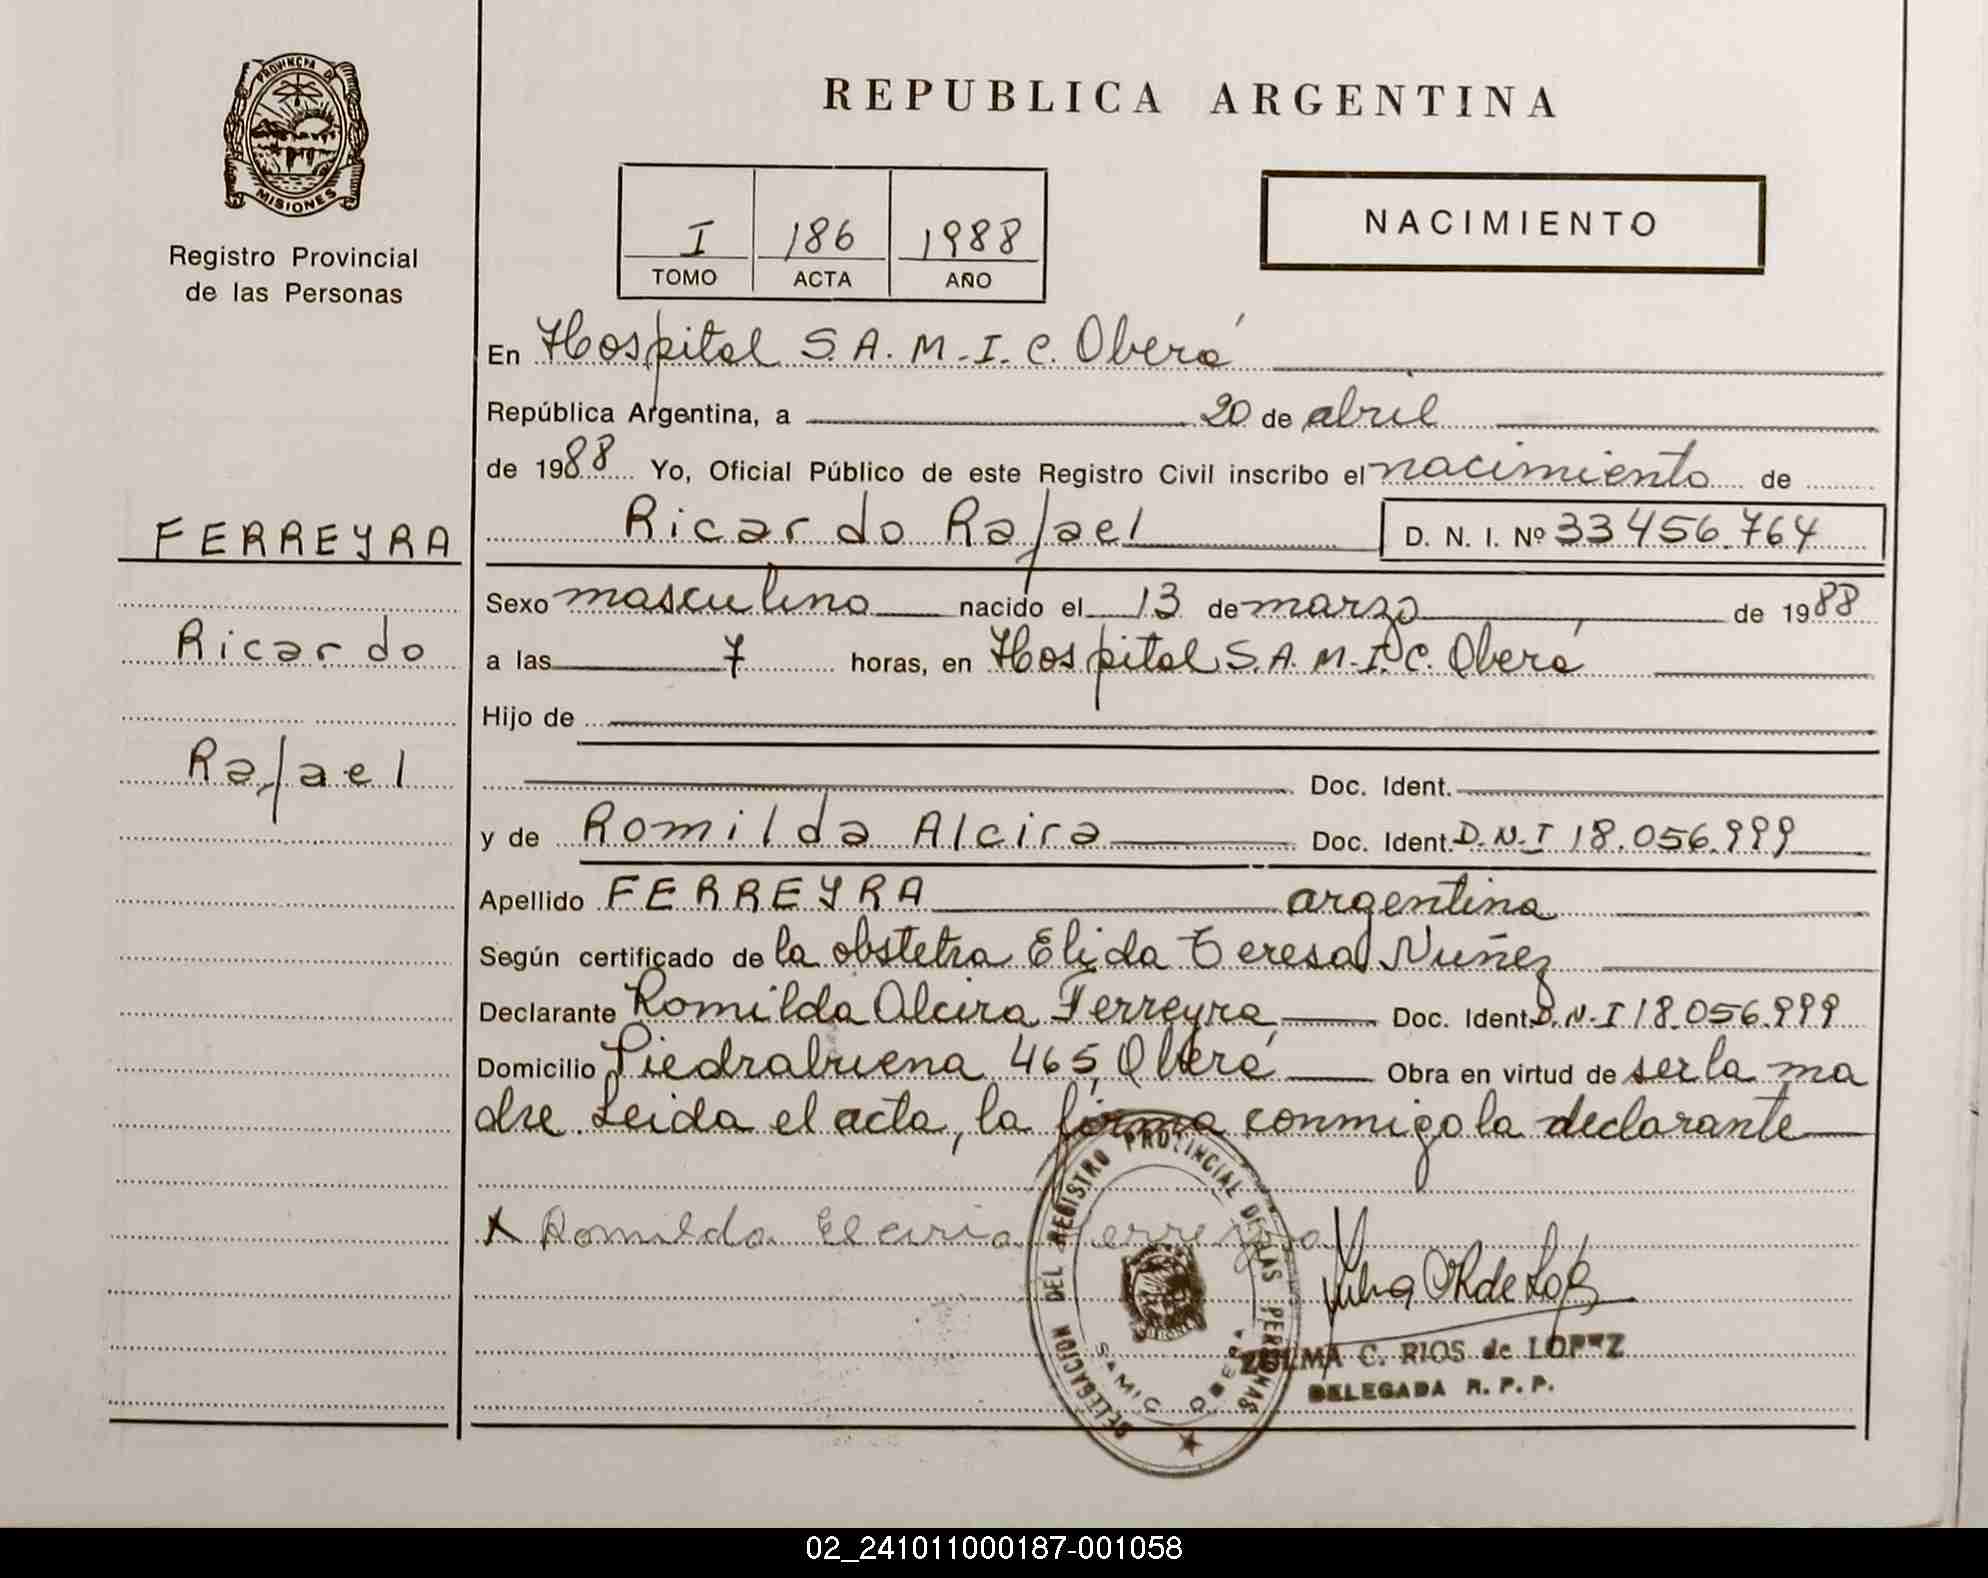 PROVINCIA DE
MISIONES
Registro Provincial
de las Personas
FERREYRA
Ricardo
Rafael
REPUBLICA ARGENTINA
I 186 1988
TOMO ACTA AÑO
NACIMIENTO
En Hospital S.A.M.I.C. Oberá
República Argentina, a 20 de abril
de 1988 Yo, Oficial Público de este Registro Civil inscribo el nacimiento de
Ricardo Rafael D. N. I. Nº 33456.764
Sexo masculino nacido el 13 de marzo de 1988
a las 7 horas, en Hospital S.A.M.I.C. Oberá
Hijo de
Doc. Ident.
y de Romilda Alcira Doc. Ident. D.N.I 18.056.999
Apellido FERREYRA argentina
Según certificado de la obstetra Elida Teresa Nuñez
Declarante Romilda Alcira Ferreyra Doc. Ident. D.N.I 18.056.999
Domicilio Piedrabuena 465, Oberá Obra en virtud de ser la ma
dre. Leida el acta, la firma conmigo la declarante
X Romilda Elciria Ferreyra
DELEGACION DEL REGISTRO PROVINCIAL DE LAS PERSONAS
SAMIC OBERA
ZULMA C. RIOS de LOPEZ
DELEGADA R. P. P.
02_241011000187-001058